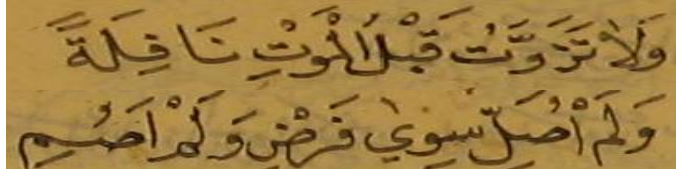 وَلَا تَزَوَّدْتُ قَبْلَ الْمَوْتِ نَافِلَةً
وَلَمْ أُصَلِّ سِوَى فَرْضٍ وَلَمْ أَصُمِ